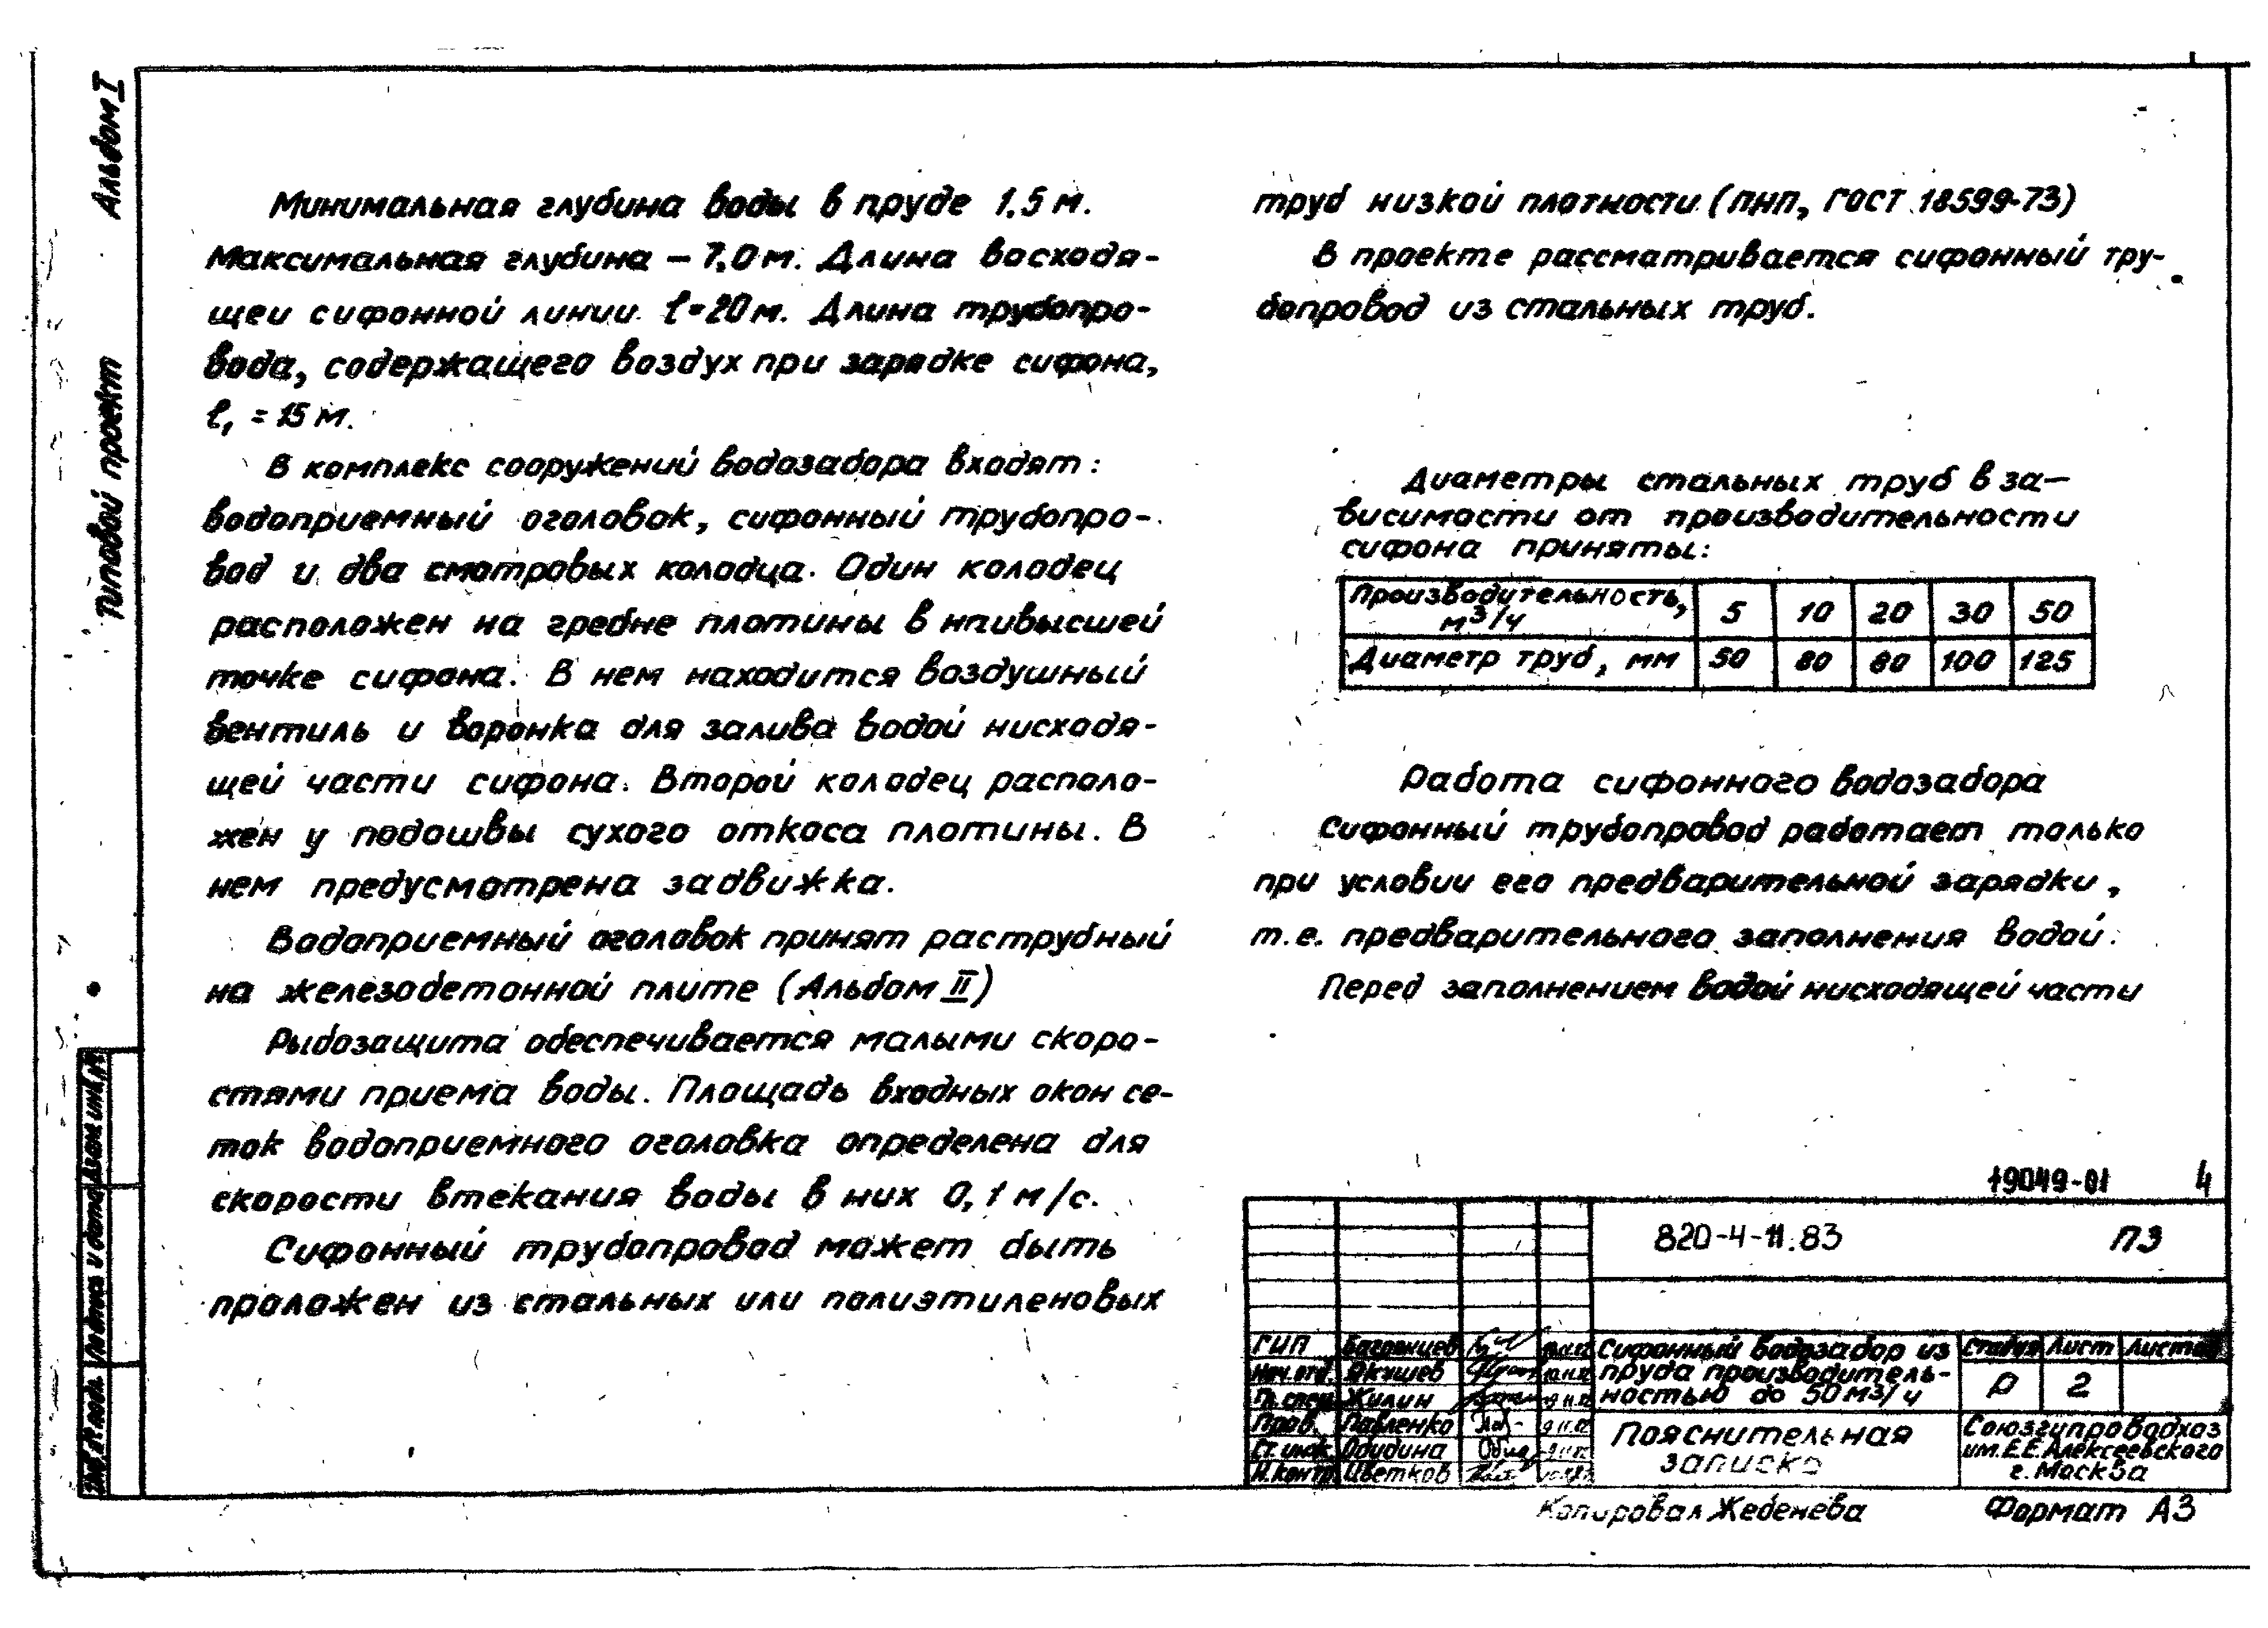 Альбом I
Типовой проект
Минимальная глубина воды в пруде 1,5 м.
Максимальная глубина – 7,0 м. Длина восходя-
щеи сифонной линии ℓ=20м. Длина трубопро-
вода, содержащего воздух при зарядке сифона,
ℓ₁ = 15 м.
В комплекс сооружений водозабора входят:
водоприемный оголовок, сифонный трубопро-
вод и два смотровых колодца. Один колодец
расположен на гребне плотины в нпивысшей
точке сифона. В нем находится воздушный
вентиль и воронка для залива водой нисходя-
щей части сифона. Второй колодец располо-
жен у подошвы сухого откоса плотины. В
нем предусмотрена задвижка.
Водоприемный оголовок принят раструбный
на железобетонной плите (Альбом II)
Рыбозащита обеспечивается малыми скоро-
стями приема воды. Площадь входных окон се-
ток водоприемного оголовка определена для
скорости втекания воды в них 0,1 м/с.
Сифонный трубопровод может быть
проложен из стальных или полиэтиленовых
труб низкой плотности (ПНП, ГОСТ 18599-73)
В проекте рассматривается сифонный тру-
бопровод из стальных труб.
Диаметры стальных труб в за-
висимости от производительности
сифона приняты:
Производительность, м³/ч 5 10 20 30 50
Диаметр труб, мм 50 80 80 100 125
Работа сифонного водозабора
Сифонный трубопровод работает только
при условии его предварительной зарядки,
т.е. предварительного заполнения водой.
Перед заполнением водой нисходящей части
19049-01 4
820-4-11.83 ПЗ
ГИП Багронцев
Нач.отд. Якушев
Гл.спец. Жилин
Пров. Павленко
Ст.инж. Обидина
Н.контр. Цветков
Сифонный водозабор из
пруда производитель-
ностью до 50 м3/ч
Стадия Лист Листов
Р 2
Пояснительная
записка
Союзгипроводхоз
им. Е.Е.Алексеевского
г. Москва
Копировал Жебенева Формат А3
Взам инв.№
Подпись и дата
Инв.№ подл.